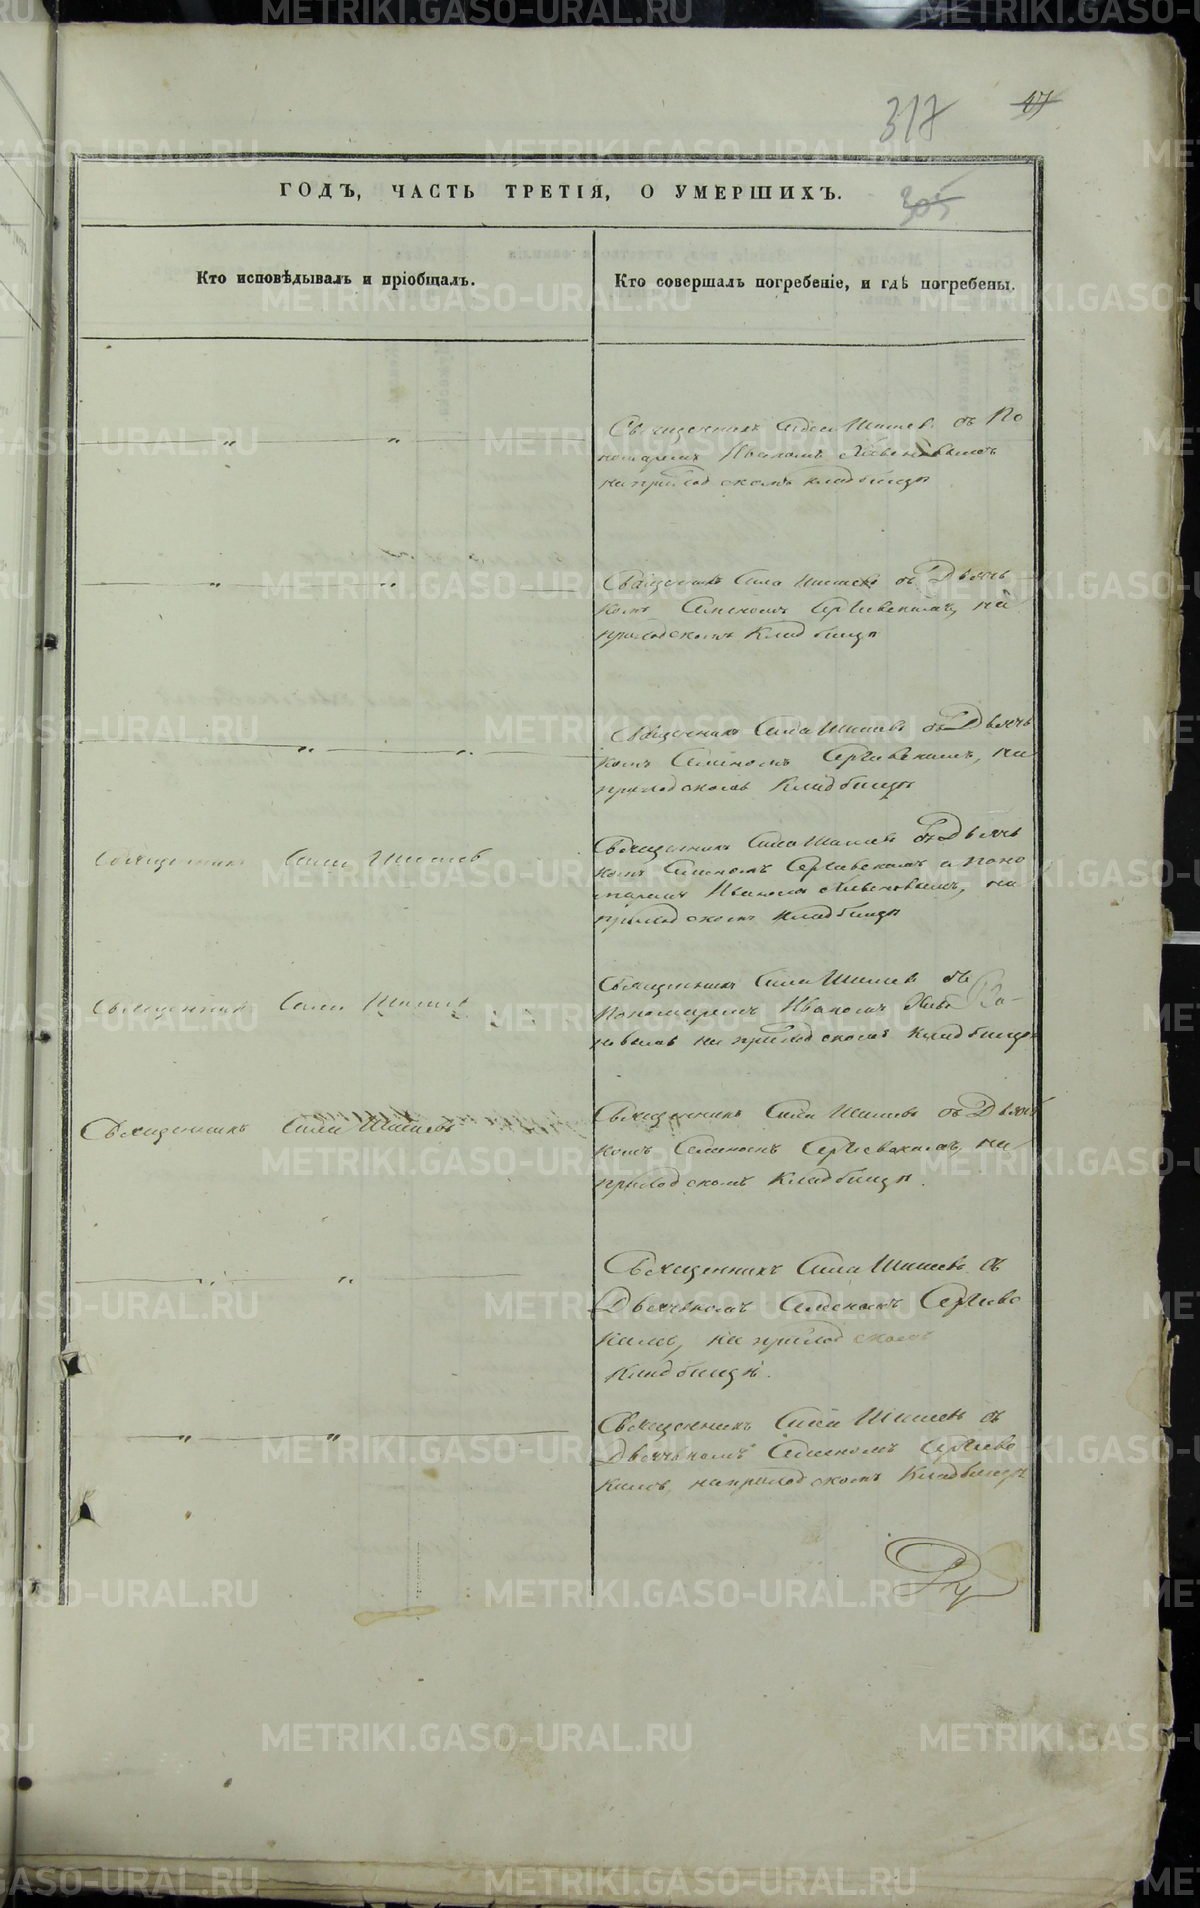 METRIKI.GASO-URAL.RU
317
47
ГОДЪ, ЧАСТЬ ТРЕТІЯ, О УМЕРШИХЪ.
305
Кто исповѣдывалъ и пріобщалъ.
Кто совершалъ погребеніе, и гдѣ погребены.
Священникъ Сила Шишевъ съ По
номаремъ Иваномъ
на приходскомъ кладбищѣ
Священникъ Сила Шишевъ съ Дьячь
комъ Семеномъ Сергіевскимъ, на
приходскомъ Кладбищѣ
Священникъ Сила Шишевъ съ Дьячь
комъ Семеномъ Сергіевскимъ, на
приходскомъ Кладбищѣ
Священникъ Сила Шишевъ
Священникъ Сила Шишевъ съ Дьячь
комъ Семеномъ Сергіевскимъ и поно
маремъ Иваномъ на
приходскомъ кладбищѣ
Священникъ Сила Шишевъ
Священникъ Сила Шишевъ съ
Пономаремъ Иваномъ
на приходскомъ Кладбищѣ
Священникъ Сила Шишевъ
Священникъ Сила Шишевъ съ Дьячь
комъ Семеномъ Сергіевскимъ, на
приходскомъ Кладбищѣ.
Священникъ Сила Шишевъ съ
Дьячькомъ Семеномъ Сергіевс
кимъ, на приходскомъ
Кладбищѣ.
Священникъ Сила Шишевъ съ
Дьячькомъ Семеномъ Сергіевс
кимъ, на приходскомъ Кладбищѣ